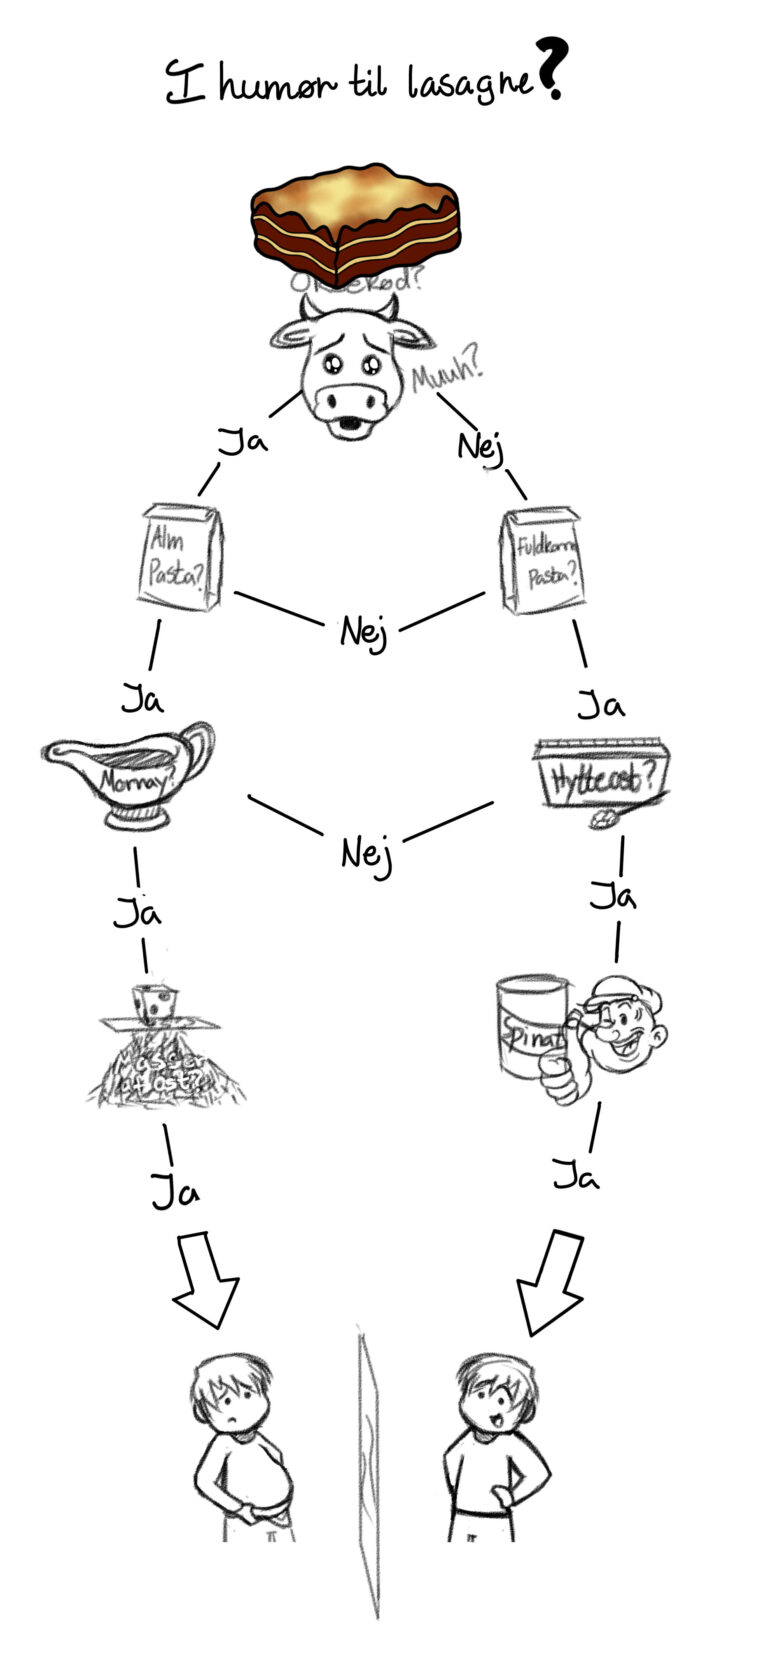 I humør til lasagne?
Oksekød?
Muuh?
Ja
Nej
Alm
Pasta?
Fuldkorn
Pasta?
Nej
Ja
Ja
Mornay?
Hytteost?
Nej
Ja
Ja
Spinat
Masser
af ost?
Ja
Ja